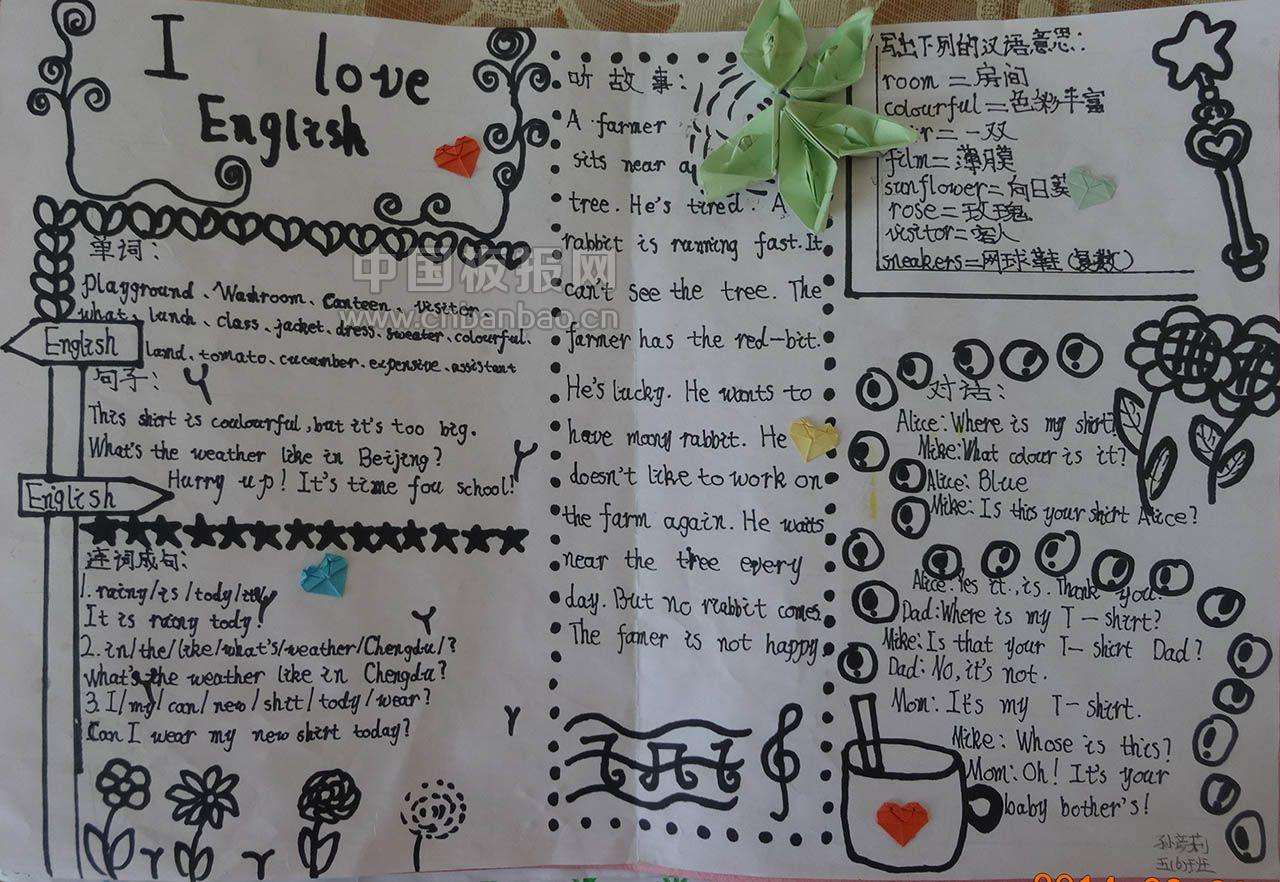 I love
English
单词：
playground、Washroom、Canteen、visitor、
what、lunch、class、jacket、dress、sweater、colourful、
land、tomato、cucamber、expensive、assistant
English
句子：
This shirt is coulourful,but it's too big.
What's the weather like in Beijing?
Hurry up! It's time fou school!
English
连词成句：
1. rainy/is/tody/it/
It is rainy tody!
2. in/the/like/what's/weather/Chengdu/?
what's the weather like in Chengdu?
3. I/my/can/new/shit/tody/wear?
Can I wear my new shirt today?
听故事：
A farmer
sits near a
tree. He's tired. A
rabbit is running fast. It
can't see the tree. The
farmer has the red-bit.
He's lucky. He wants to
have many rabbit. He
doesn't like to work on
the farm again. He waits
near the tree every
day. But no rabbit comes.
The famer is not happy.
写出下列的汉语意思：
room=房间
colourful=色彩丰富
=一双
film=薄膜
sunflower=向日葵
rose=玫瑰
visitor=客人
sneakers=网球鞋(复数)
对话：
Alice:Where is my shirt?
Mike:What colour is it?
Alice: Blue
Mike: Is this your shirt Alice?
Alice:Yes it.,is. Thank you.
Dad:Where is my T-shirt?
Mike:Is that your T-shirt Dad?
Dad: NO, it's not.
Mom: It's my T-shirt.
Mike: Whose is this?
Mom:Oh! It's your
baby bother's!
五(6)班
中国板报网
www.cnbanbao.cn